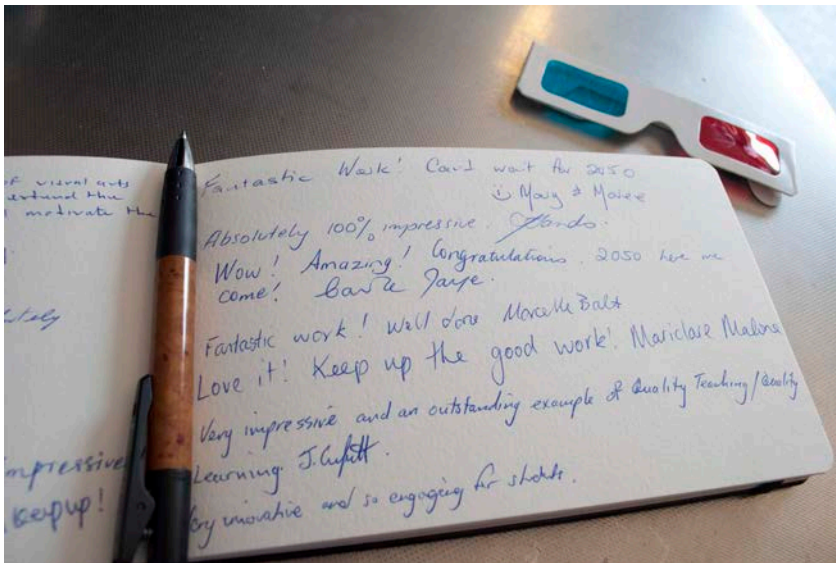 of visual arts
motivate the
impressive
keep up!
Fantastic Work! Can't wait for 2050
☺ Mary & Maree
Absolutely 100% impressive.
Wow! Amazing! Congratulations. 2050 here we
come!
Fantastic work! Well done Marcelle Balt
Love it! Keep up the good work! Mariclare Malone
Very impressive and an outstanding example of Quality Teaching/Quality
Learning J.
Very inovative and so engaging for students.